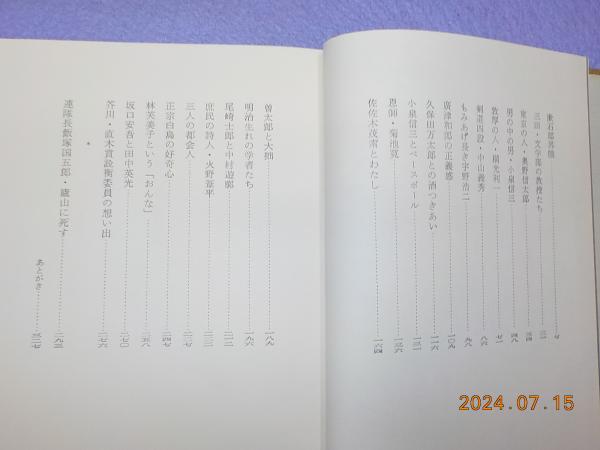 漱石郎界隈……七
三田・文学部の教授たち……三一
東京の人・奥野信太郎……三四
男の中の男・小泉信三……四八
敦厚の人・横光利一……七一
剣道四段・中山義秀……八六
もみあげ長き宇野浩二……九八
廣津和郎の正義感……一〇九
久保田万太郎との酒つきあい……一一六
小泉信三とベースボール……一三一
恩師・菊池寛……一三六
佐佐木茂索とわたし……一六四
曽太郎と大拙……一八九
明治生れの学者たち……一九六
尾崎士郎と中村遊廓……二一二
庶民の詩人・火野葦平……二二三
三人の都会人……二三七
正宗白鳥の好奇心……二四七
林芙美子という「おんな」……二五八
坂口安吾と田中英光……二七〇
芥川・直木賞詮衡委員の想い出……二七六
*
連隊長飯塚国五郎・廬山に死す……二九五
あとがき……三二七
2024.07.15